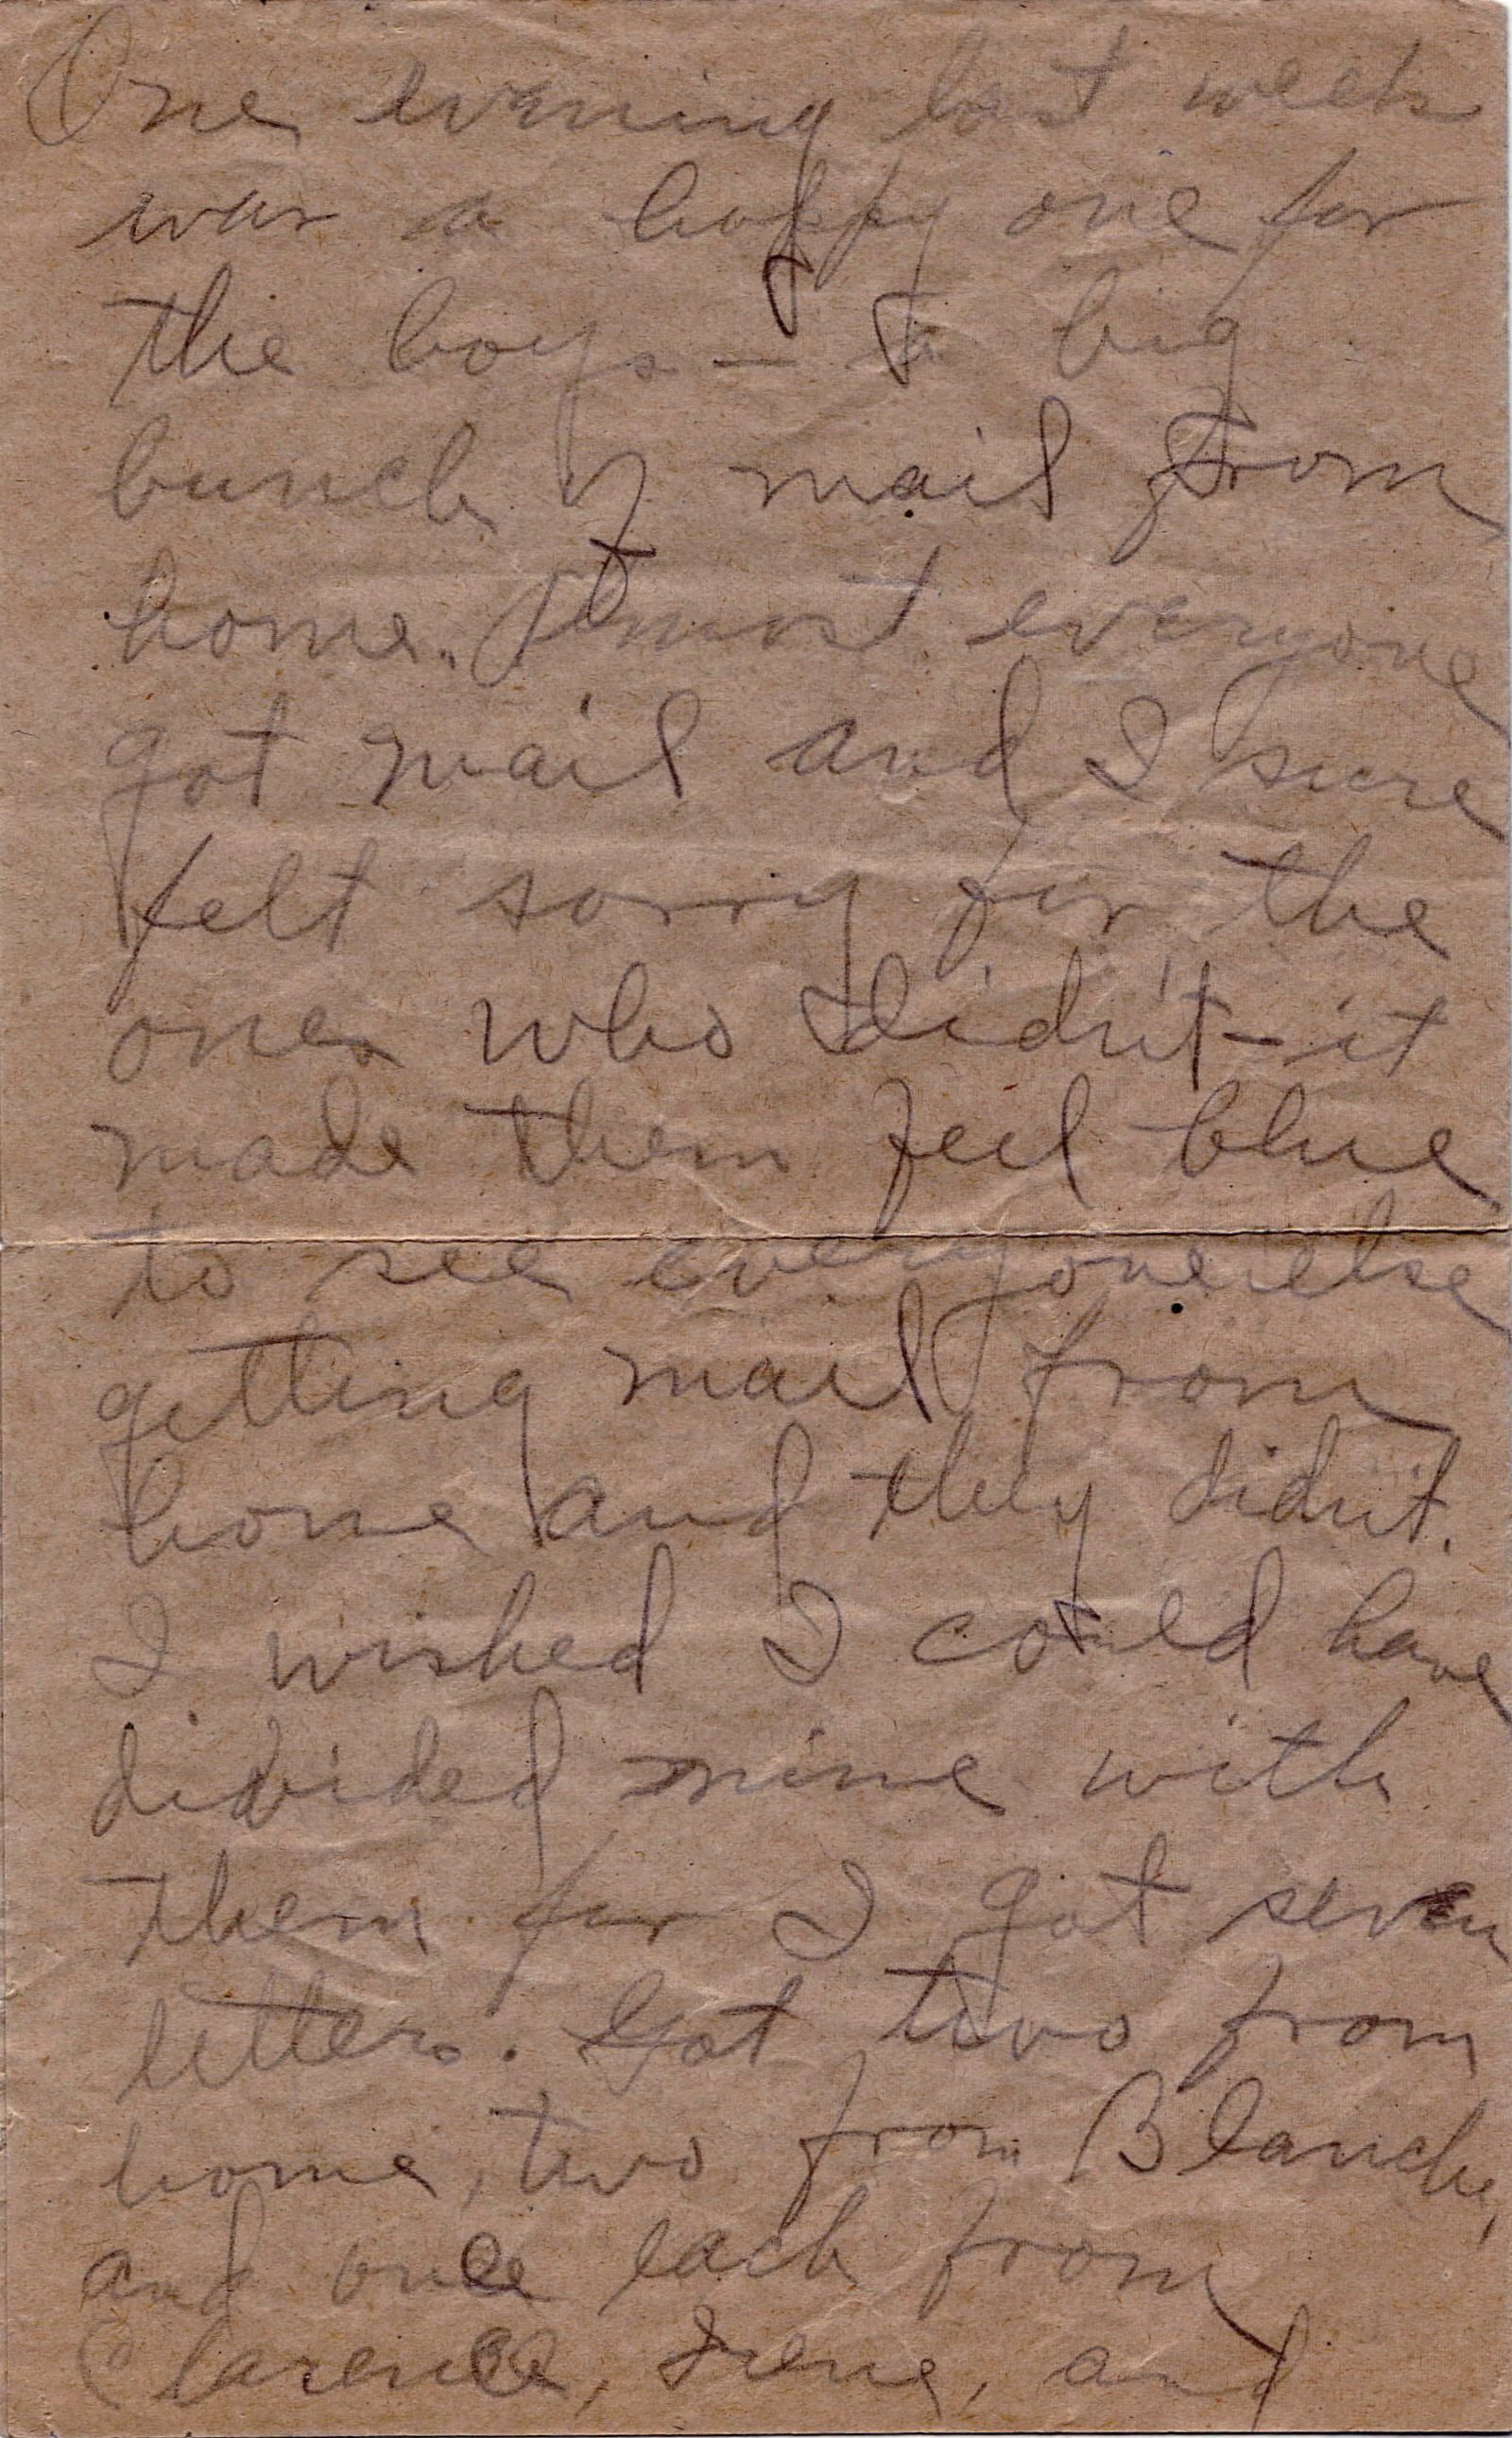 One evening last week
was a happy one for
the boys — a big
bunch of mail from
home. Almost everyone
got mail and I sure
felt sorry for the
ones who didn't - it
made them feel blue
to see everyone else
getting mail from
home and they didn't.
I wished I could have
divided mine with
them for I got seven
letters. Got two from
home, two from Blanche,
and one each from
Clarence, Irene, and